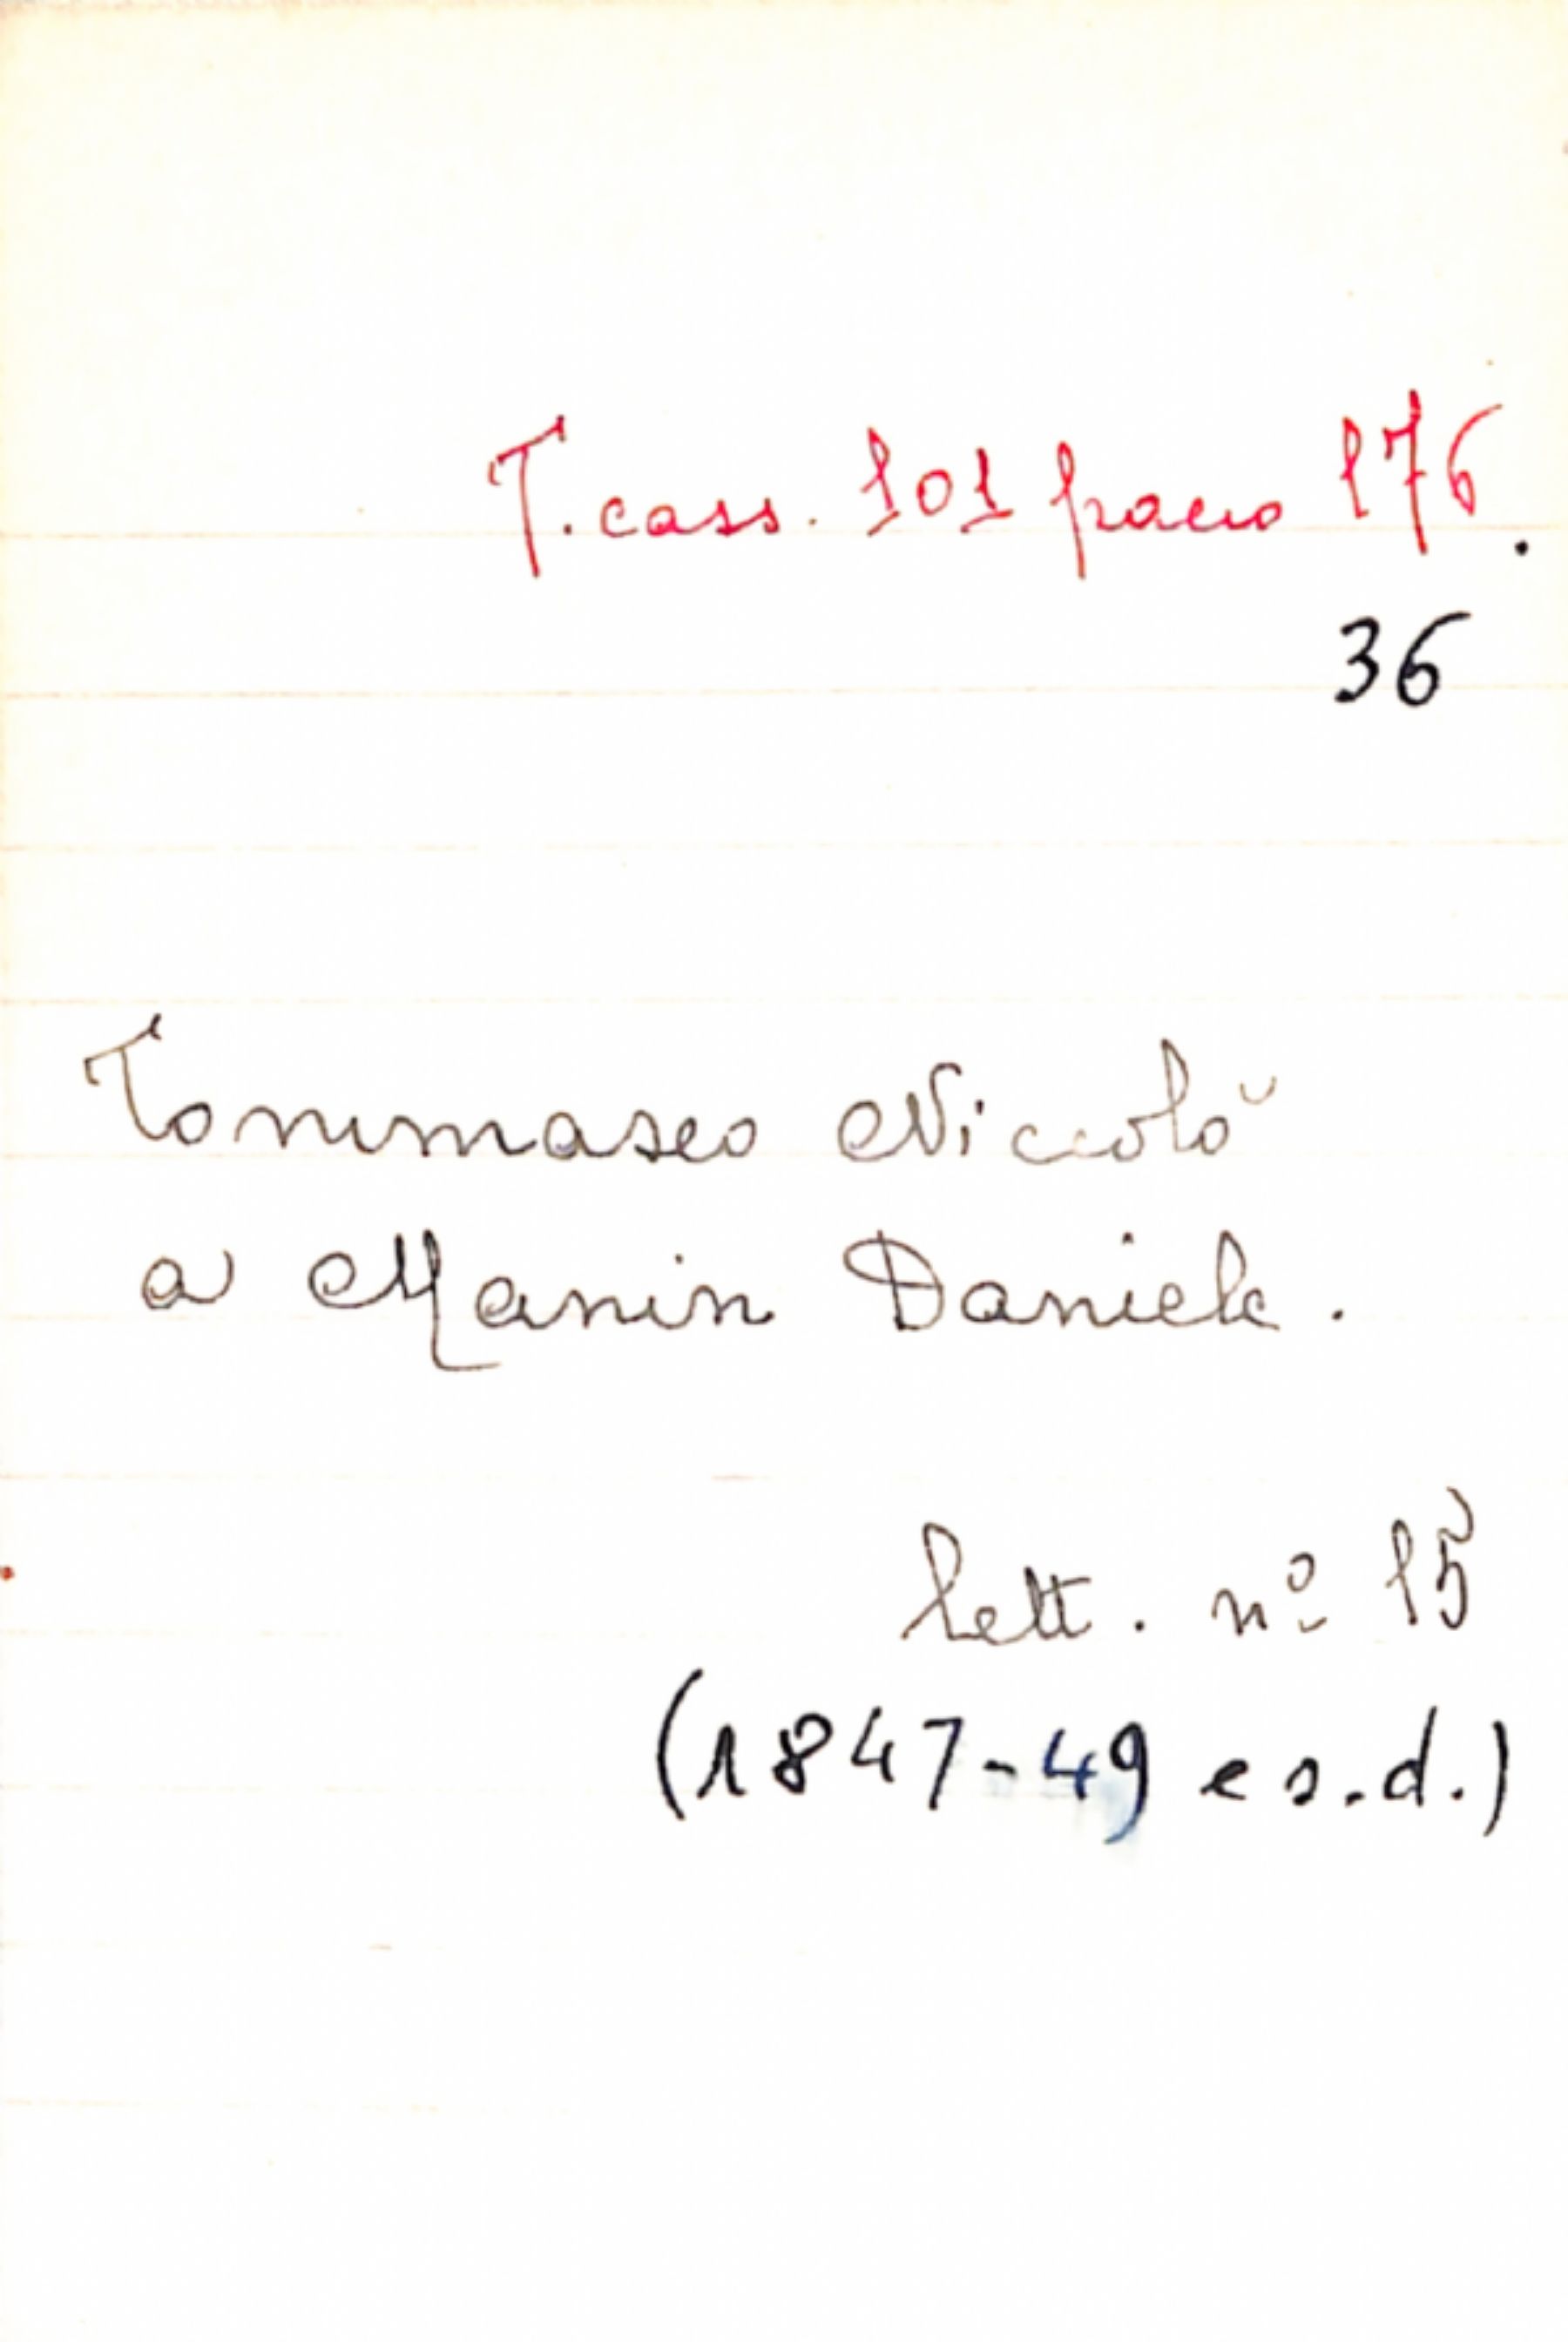 T. cass. 101 pacco 176.
36
Tommaseo Niccolò
a Manin Daniele.
Lett. nº 15
(1847-49 e s.d.)